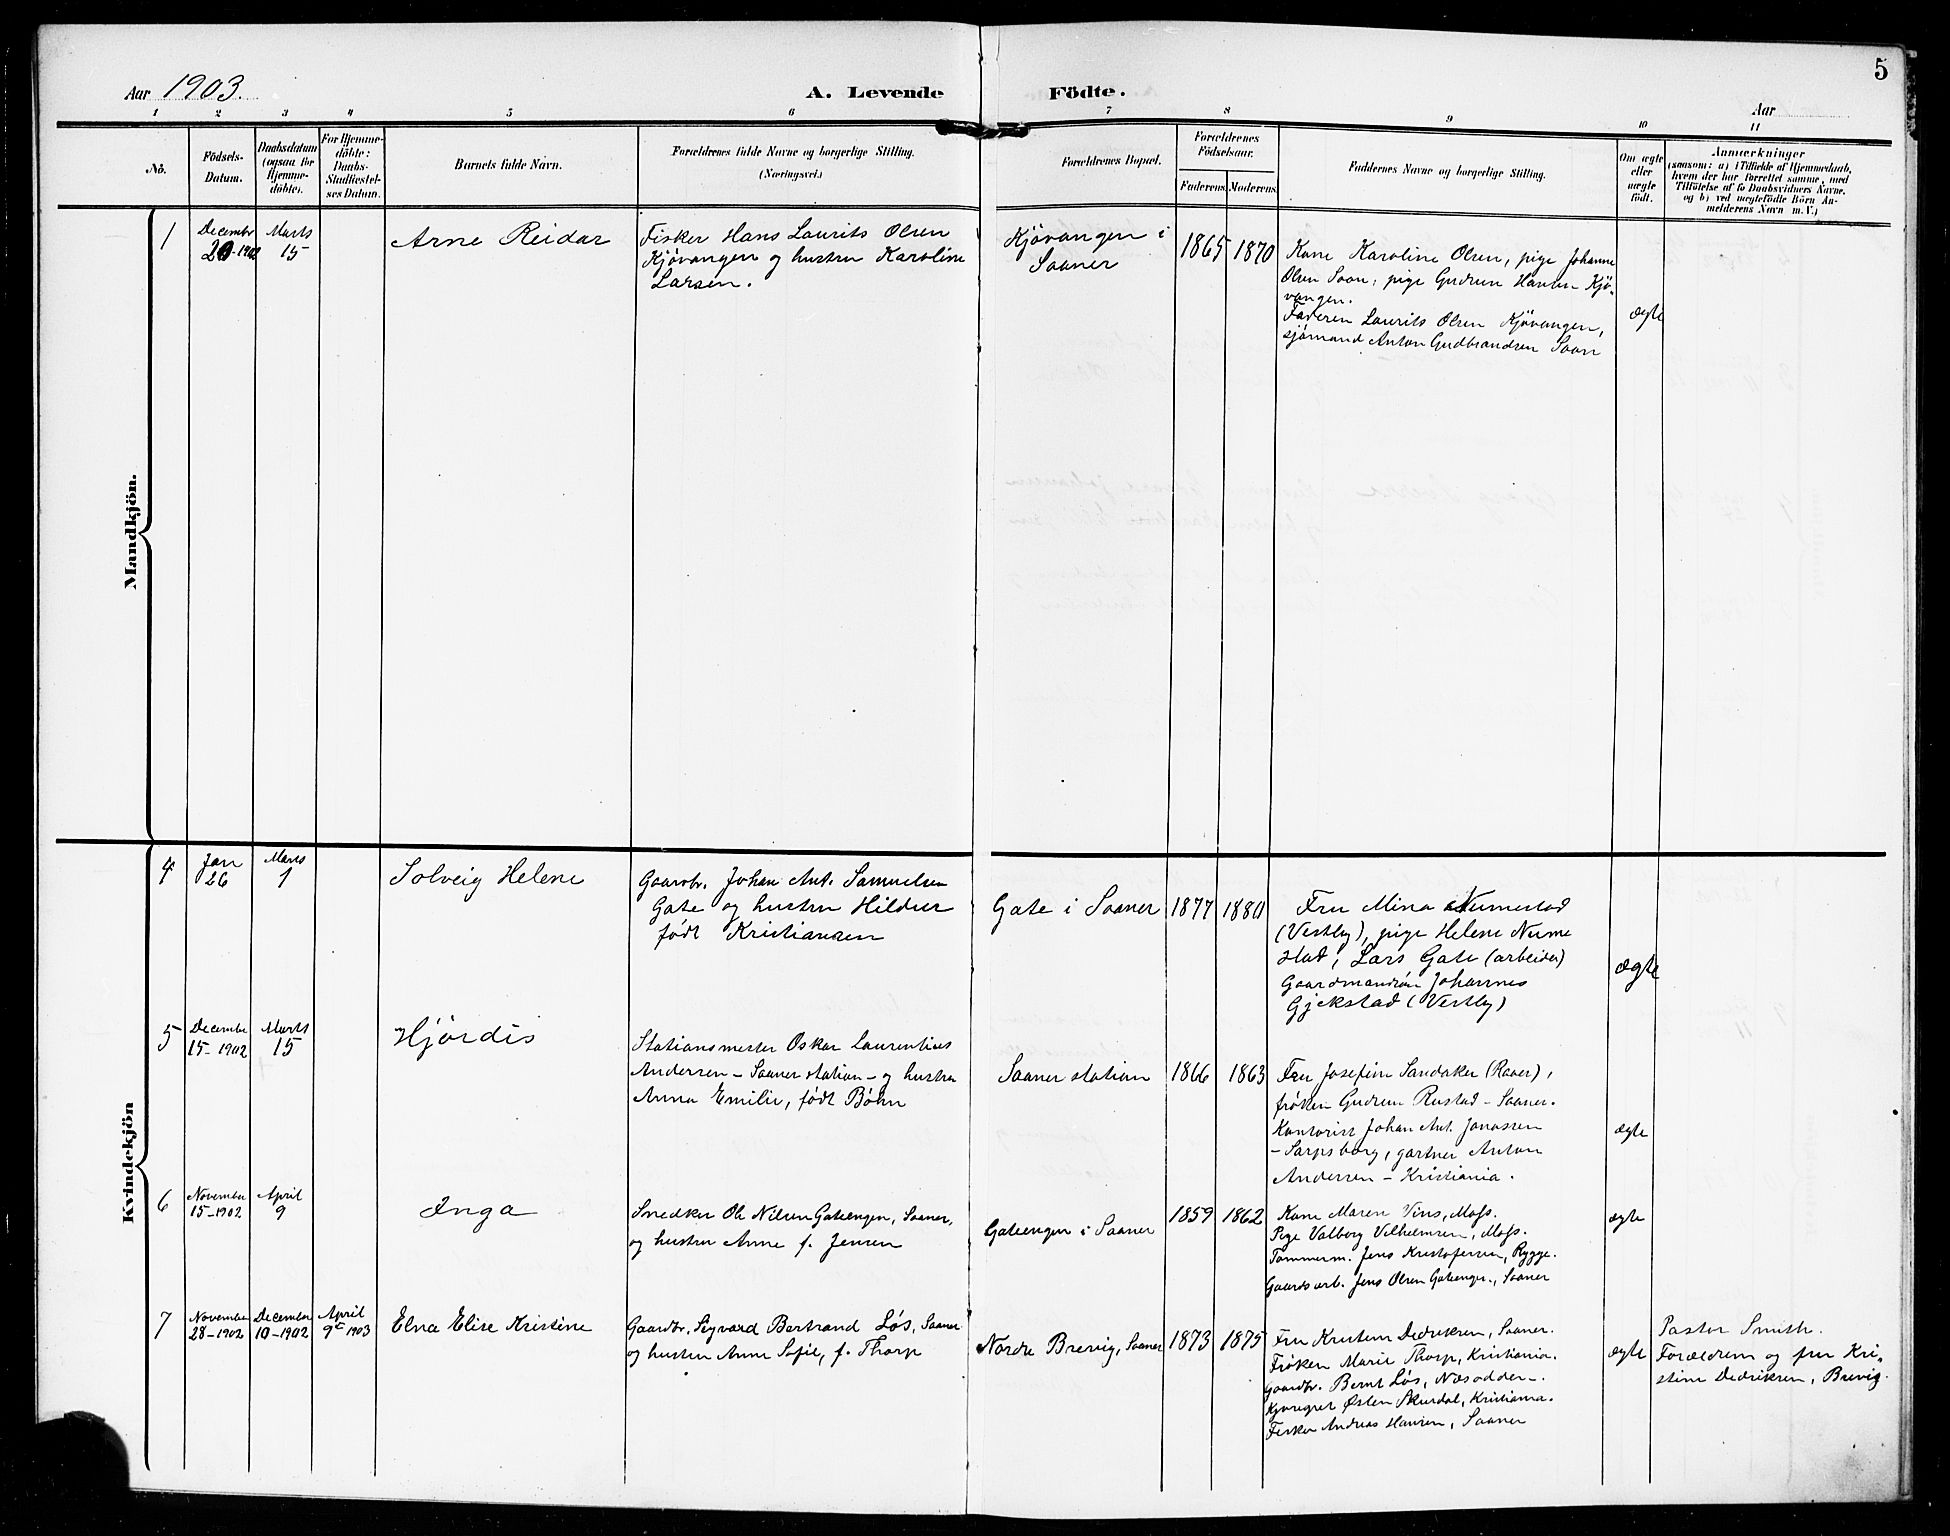 5
Aar 1903.
A. Levende Födte.
Aar
1 2 3 4 5 6 7 8 9 10 11
No.
Födsels-
Datum.
Daabsdatum
(ogsaa for
Hjemme-
döbte).
For Hjemme-
döbte:
Daabs-
Stadfæstel-
ses Datum.
Barnets fulde Navn.
Forældrenes fulde Navne og borgerlige Stilling.
(Næringsvei.)
Forældrenes Bopæl.
Forældrenes
Födselsaar.
Faderens. Moderens.
Faddernes Navne og borgerlige Stilling.
Om ægte
eller
uægte
födt.
Anmærkninger
(saasom: a) i Tilfælde af Hjemmedaab,
hvem der har forrettet samme, med
Tilföielse af to Daabsvidners Navne,
og b) ved uægtefödte Börn An-
melderens Navn m. V.)
Mandkjön.
1
Decembr
20-1902
Marts
15
Arne Reidar
Fisker Hans Laurits Olsen
Kjövangen og hustru Karoline
Larsen.
Kjövangen i
Saaner
1865 1870
Kone Karoline Olsen, pige Johanne
Olsen Soon, pige Gudrun Hansen Kjö-
vangen.
Faderen Laurits Olsen Kjövangen,
sjömand Anton Gudbrandsen Soon
ægte
Kvindekjön
4
Jan
26
Marts
1
Solveig Helene
Gaardbr. Johan Ant. Samuelsen
Gate og hustru Hildur
født Kristiansen
Gate i Saaner
1877 1880
Fru Mina Numestad
(Vestby), pige Helene Nume
stad, Lars Gate (arbeider)
Gaardmandsön Johannes
Gjekstad (Vestby)
ægte
5
Decembe
15-1902
Marts
15
Hjördis
Stationsmester Oskar Laurentius
Andersen – Saaner station – og hustru
Anna Emilie, født Bøhn
Saaner station
1866 1863
Fru Josefine Sandaker (Raaer),
frøken Gudrun Rustad – Saaner.
Kontorist Johan Ant. Jonassen
– Sarpsborg, gartner Anton
Andersen – Kristiania.
ægte
6
November
15-1902
April
9
Inga
Snedker Ole Nilsen Gateengen, Saaner,
og hustru Anne f. Jensen
Gateengen i Saaner
1859 1862
Kone Maren Vins, Moss.
Pige Valborg Vilhelmsen, Moss.
Tømmerm. Jens Kristofersen, Rygge.
Gaardsarb. Jens Olsen Gateengen, Saaner
ægte
7
November
28-1902
December
10-1902
April
9 1903
Elna Elise Kristine
Gaardbr. Sigvard Bertrand Løs, Saaner
og hustru Anne Sofie, f. Thorp
Nordre Brevig, Saaner
1873 1875
Fru Kristine Dedriksen, Saaner.
Frøken Marie Thorp, Kristiania.
Gaardbr. Bernt Løs, Næsodden.
Østen Skurdal, Kristiania.
Fisker Andreas Hansen, Saaner
ægte
Pastor Smith.
Forældrene og fru Kri-
stine Dedriksen, Brevig.